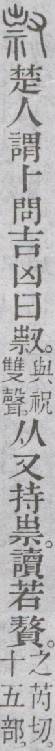 楚人謂卜問吉凶曰𠭥。與祝雙聲从又持祟。讀若贅。之芮切十五部